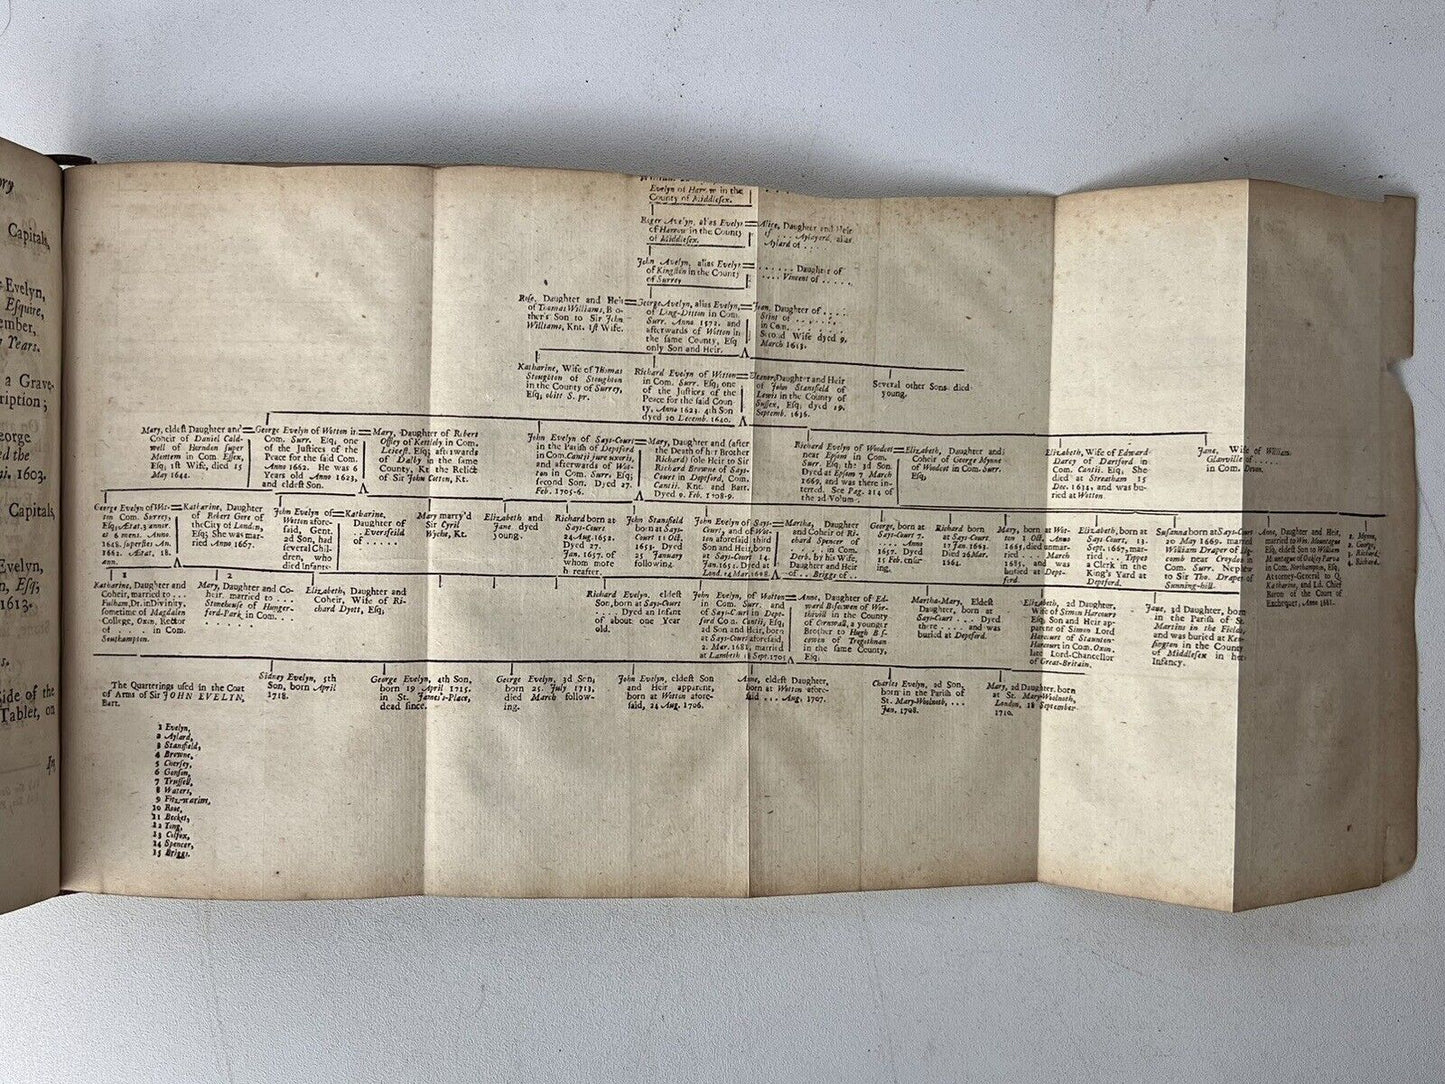 Capitals,
Evelyn,
Esquire,
Years.
a Grave-
George
1603.
Capitals,
Evelyn,
1613.
Side of the
Tablet, on
Evelyn of Harrow in the
County of Middlesex.
Roger Avelyn, alias Evelyn
of Harrow in the County
of Middlesex.
Alice, Daughter and Heir
of . . . Aylayerd, alias
Aylard of . . . .
John Avelyn, alias Evelyn
of Kingston in the County
of Surrey
. . . . . . Daughter of
. . . . Vincent of . . . . .
Rose, Daughter and Heir
of Thomas Williams, Bro-
ther's Son to Sir John
Williams, Knt. 1st Wife.
George Avelyn, alias Evelyn,
of Long-Ditton in Com.
Surr. Anno 1572. and
afterwards of Wotton in
the same County, Esq;
only Son and Heir.
Joan, Daughter of . . . .
Stint of . . . . . . .
in Com. . . . . .
Second Wife dyed 9.
March 1613.
Katharine, Wife of Thomas
Stoughton of Stoughton
in the County of Surrey,
Esq; obiit S. pr.
Richard Evelyn of Wotton
in Com. Surr. Esq; one
of the Justices of the
Peace for the said Coun-
ty, Anno 1623. 4th Son
dyed 20 Decemb. 1640.
Eleanor, Daughter and Heir
of John Stansfeld of
Lewis in the County of
Sussex, Esq; dyed 19.
Septemb. 1636.
Several other Sons died
young.
Mary, eldest Daughter and
Coheir of Daniel Cald-
well of Horndon super
Montem in Com. Essex,
Esq; 1st Wife, died 15
May 1644.
George Evelyn of Wotton in
Com. Surr. Esq; one
of the Justices of the
Peace for the said Com.
Anno 1662. He was 6
Years old Anno 1623,
and eldest Son.
Mary, Daughter of Robert
Offley of in Com.
Leicest. Esq; afterwards
of Dalby in the same
County, Kt. the Relict
of Sir John Cotton, Kt.
John Evelyn of Says-Court
in the Parish of Deptford
in Com. Cantii jure uxoris,
and afterwards of Wot-
ton in Com. Surr. Esq;
second Son. Dyed 27.
Feb. 1705-6.
Mary, Daughter and (after
the Death of her Brother
Richard) sole Heir to Sir
Richard Browne of Says-
Court in Deptford, Com.
Cantii. Knt. and Bart.
Dyed 9. Feb. 1708-9.
Richard Evelyn of Woodcot
near Epsom in Com.
Surr. Esq; the 3d Son.
Dyed at Epsom 7 March
1669, and was there in-
terred. See Pag. 214 of
the 2d Volume.
Elizabeth, Daughter and
Coheir of George Mynne
of Woodcot in Com. Surr.
Esq;
Elizabeth, Wife of Edward
Darcy of Dartford in
Com. Cantii. Esq; She
died at Streatham 15
Dec. 1634, and was bu-
ried at Wotton.
Jane, Wife of William
Glanville of . . . . .
in Com. Devon.
George Evelyn of Wot-
ton Com. Surrey,
Esq; Ætat. 3 annor.
et 6 mens. Anno
1648. superstes An.
1662. Ætat. 18.
ann.
Katharine, Daughter
of Robert Gore of
the City of London,
Esq; She was mar-
ried Anno 1667.
John Evelyn of
Wotton afore-
said, Gent.
2d Son, had
several Chil-
dren, who
died Infants.
Katharine,
Daughter of
. . Eversfeild
of . . . . .
Mary marry'd
Sir Cyril
Wyche, Kt.
Elizabeth and
Jane dyed
young.
Richard born at
Says-Court
24 Aug. 1652.
Dyed 27.
Jan. 1657. of
whom more
hereafter.
John Stansfield
born at Says-
Court 11 Oct.
1653. Dyed
25 January
following.
John Evelyn of Says-
Court, and of Wot-
ton aforesaid third
Son and Heir, born
at Says-Court 14.
Jan. 1654. Dyed at
Lond. 24 Mar. 1698.
Martha, Daughter
and Coheir of Ri-
chard Spencer of
. . . . in Com.
Derb. by his Wife,
Daughter and Heir
of . . Briggs of . .
George, born at
Says-Court 7.
. . . Anno
1657. Dyed
15 Feb. ensu-
ing.
Richard born
at Says-Court
Dyed 26 Mar.
1664.
Mary, born at Wot-
ton 1 Oct.
1665, died unmar-
ried . . . March
1685, and was
buried at Dept-
ford.
Elizabeth, born at
Says-Court, 13.
Sept. 1667, mar-
ried . . . Tippet
a Clerk in the
King's Yard at
Deptford.
Susanna born at Says-Court
20 May 1669. married
William Draper of
comb near Croydon in
Com. Surr. Nephew
to Sir Tho. Draper of
Sunning-hill.
Anne, Daughter and Heir,
married to Wm. Mountague
Esq; eldest Son to William
Mountague of Oakley Parva
in Com. Northampton, Esq;
Attorney-General to Q.
Katharine, and Ld. Chief
Baron of the Court of
Exchequer, Anno 1681.
1. Mynne,
2. George,
3. Richard,
4. Richard.
1
Katharine, Daughter and
Coheir, married to . . .
Fulham, Dr. in Divinity,
sometime of Magdalen
College, Oxon. Rector
of . . . . . in Com.
Southampton.
2
Mary, Daughter and Co-
heir. married to . . .
Stonehouse of Hunger-
ford-Park in Com. . . .
Elizabeth, Daughter and
Coheir, Wife of Ri-
chard Dyott, Esq;
Richard Evelyn, eldest
Son, born at Says-Court
. . . Dyed an Infant
of about one Year
old.
John Evelyn, of Wotton
in Com. Surr. and
of Says-Court in Dept-
ford Com. Cantii, Esq;
2d Son and Heir, born
at Says-Court aforesaid,
2. Mar. 1681. married
at Lambeth 18 Sept. 1705
Anne, Daughter of Ed-
ward Boscowen of Wor-
thivill in the County
of Cornwall, a younger
Brother to Hugh Bos-
cowen of Tregothnan
in the same County,
Esq;
Martha-Mary, Eldest
Daughter, born at
Says-Court . . . Dyed
there . . . and was
buried at Deptford.
Elizabeth, 2d Daughter,
Wife of Simon Harcourt
Esq; Son and Heir ap-
parent of Simon Lord
Harcourt of Staunton-
Harcourt in Com. Oxon.
late Lord-Chancellor
of Great-Britain.
Jane, 3d Daughter, born
in the Parish of St.
Martins in the Fields,
and was buried at Ken-
sington in the County
of Middlesex in her
Infancy.
The Quarterings used in the Coat
of Arms of Sir JOHN EVELYN,
Bart.
Sidney Evelyn, 5th
Son, born April
1718.
George Evelyn, 4th Son,
born 19 April 1715,
in St. James's-Place,
dead since.
George Evelyn, 3d Son,
born 25. July 1713,
died March follow-
ing.
John Evelyn, eldest Son
and Heir apparent,
born at Wotton afore-
said, 24 Aug. 1706.
Anne, eldest Daughter,
born at Wotton afore-
said . . . Aug. 1707.
Charles Evelyn, 2d Son,
born in the Parish of
St. Mary-Woolnoth, . . .
Jan. 1708.
Mary, 2d Daughter, born
at St. Mary-Woolnoth,
London, 18 September
1710.
1 Evelyn,
2 Aylard,
3 Stansfield,
4 Browne,
5 Chersey,
6 Gonson,
7 Trussell,
8 Waters,
9 Fitz-warim,
10 Rose,
11 Becket,
12 Ting,
13 Colfox,
14 Spencer,
15 Briggs.